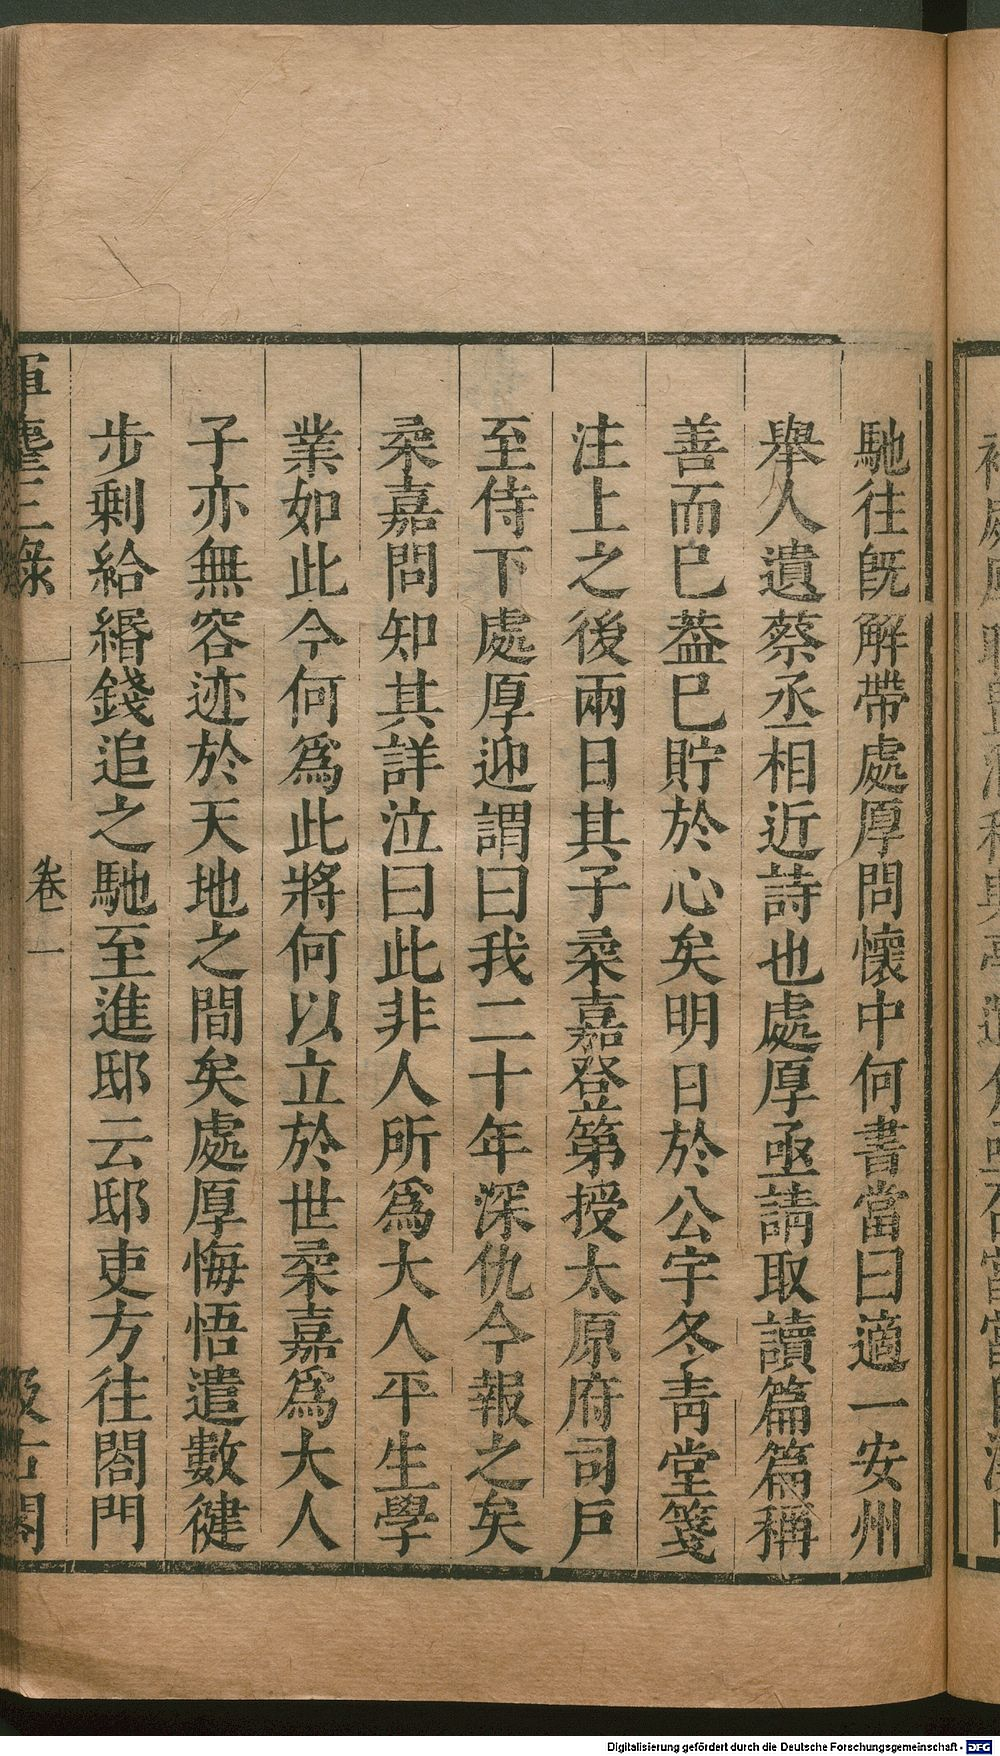 馳往旣解帶處厚問懷中何書當曰適一安州
舉人遺蔡丞相近詩也處厚亟請取讀篇篇稱
善而已葢已貯於心矣明日於公宇冬靑堂箋
注上之後兩日其子柔嘉登第授太原府司戶
至侍下處厚迎謂曰我二十年深仇今報之矣
柔嘉問知其詳泣曰此非人所爲大人平生學
業如此今何爲此將何以立於世柔嘉爲大人
子亦無容迹於天地之間矣處厚悔悟遣數健
步剩給緡錢追之馳至進邸云邸吏方往閤門
揮麈三錄 卷一 汲古閣
Digitalisierung gefördert durch die Deutsche Forschungsgemeinschaft - DFG